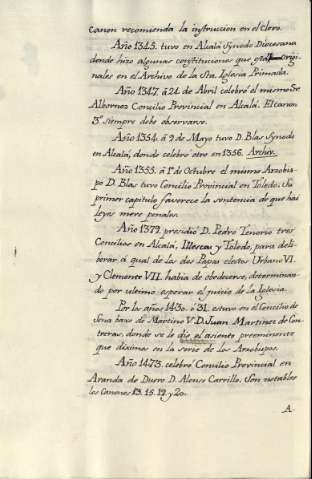 canon recomienda la instruccion en el clero.
Año 1345. tuvo en Alcalá Synodo Diocesana
donde hizo algunas constituciones que están origi-
nales en el Archivo de la Sta. Iglesia Primada.
Año 1347. á 24. de Abril celebró el mismo Sr.
Albornoz Concilio Provincial en Alcalá. El canon
3º siempre debe observarse.
Año 1354. á 9 de Mayo tuvo D. Blas Synodo
en Alcalá, donde celebró otro en 1356. Archiv.
Año 1355. á 1º de Octubre el mismo Arzobis-
po D. Blas tuvo Concilio Provincial en Toledo. Su
primer capitulo favorece la sentencia de que hai
leyes mere penales.
Año 1379. presidió D. Pedro Tenorio tres
Concilios en Alcalá, Illescas y Toledo, para deli-
berar á qual de los dos Papas electos Urbano VI.
y Clemente VII. habia de obedecerse, determinan-
do por ultimo esperar el juicio de la Iglesia.
Por los años 1430. ó 31. estuvo en el Concilio de
Sena baxo de Martino V. D. Juan Martinez de Con-
treras, donde se le dio el asiento preeminente
que diximos en la serie de los Arzobispos.
Año 1473. celebró Concilio Provincial en
Aranda de Duero D. Alonso Carrillo. Son notables
los Canones 13. 15. 19. y 20.
A.